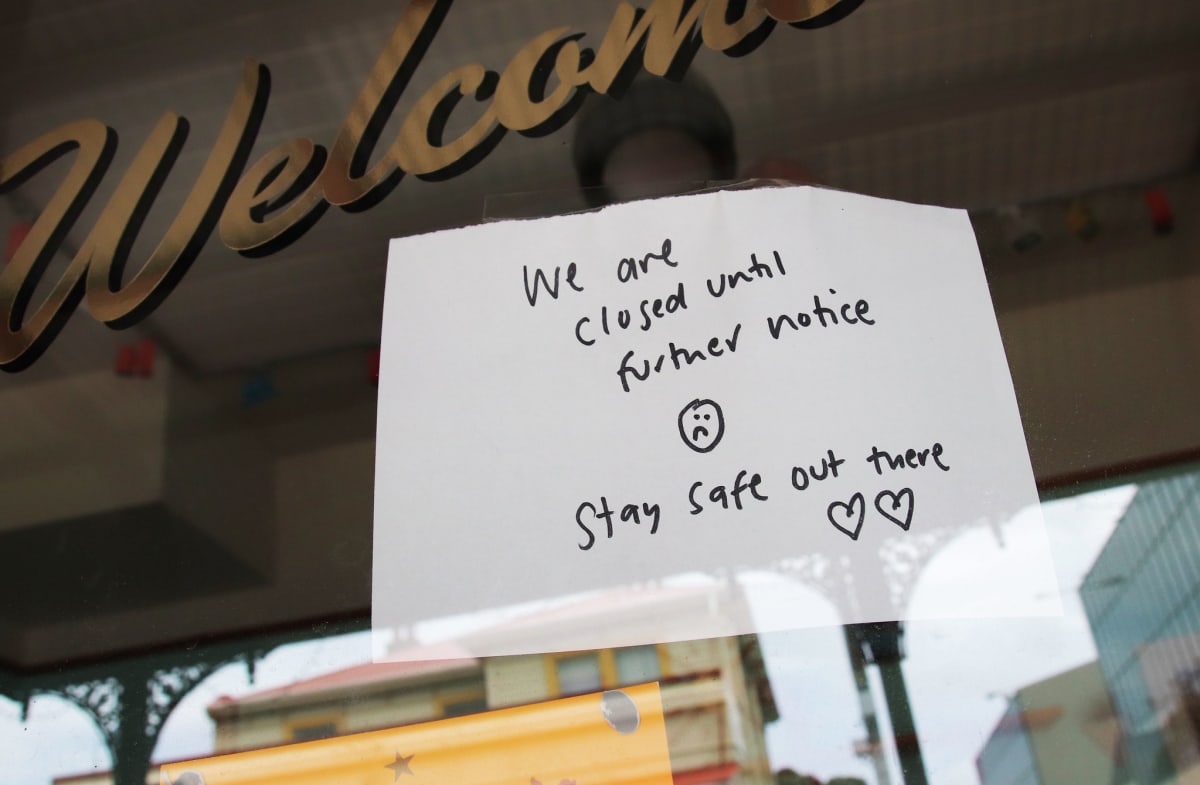 Welcome
We are
closed until
further notice
Stay safe out there